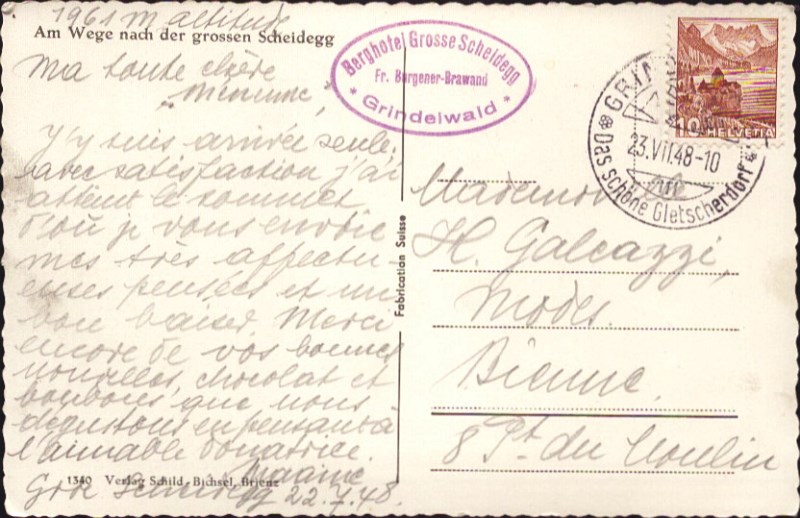 1961 m altitude
Am Wege nach der grossen Scheidegg
Ma toute chère
"Menune",
J'y suis arrivée seule.
avec satisfaction j'ai
atteint le sommet
d'où je vous envoie
mes très affectu-
euses pensées et un
bon baiser. Merci
encore de vos bonnes
nouvelles, chocolat et
bonbons que nous
dégustons en pensant à
l'aimable donatrice.
1340 Verlag Schild-Bichsel, Brienz
Grde Scheidegg 22.7.48.
Fabrication Suisse
Berghotel Grosse Scheidegg
Fr. Burgener-Brawand
* Grindelwald *
10 HELVETIA
23.VII.48-10
Das schöne Gletscherdorf
Mademoiselle
H. Galeazzi,
Modes.
Bienne.
8 Pt. du Moulin